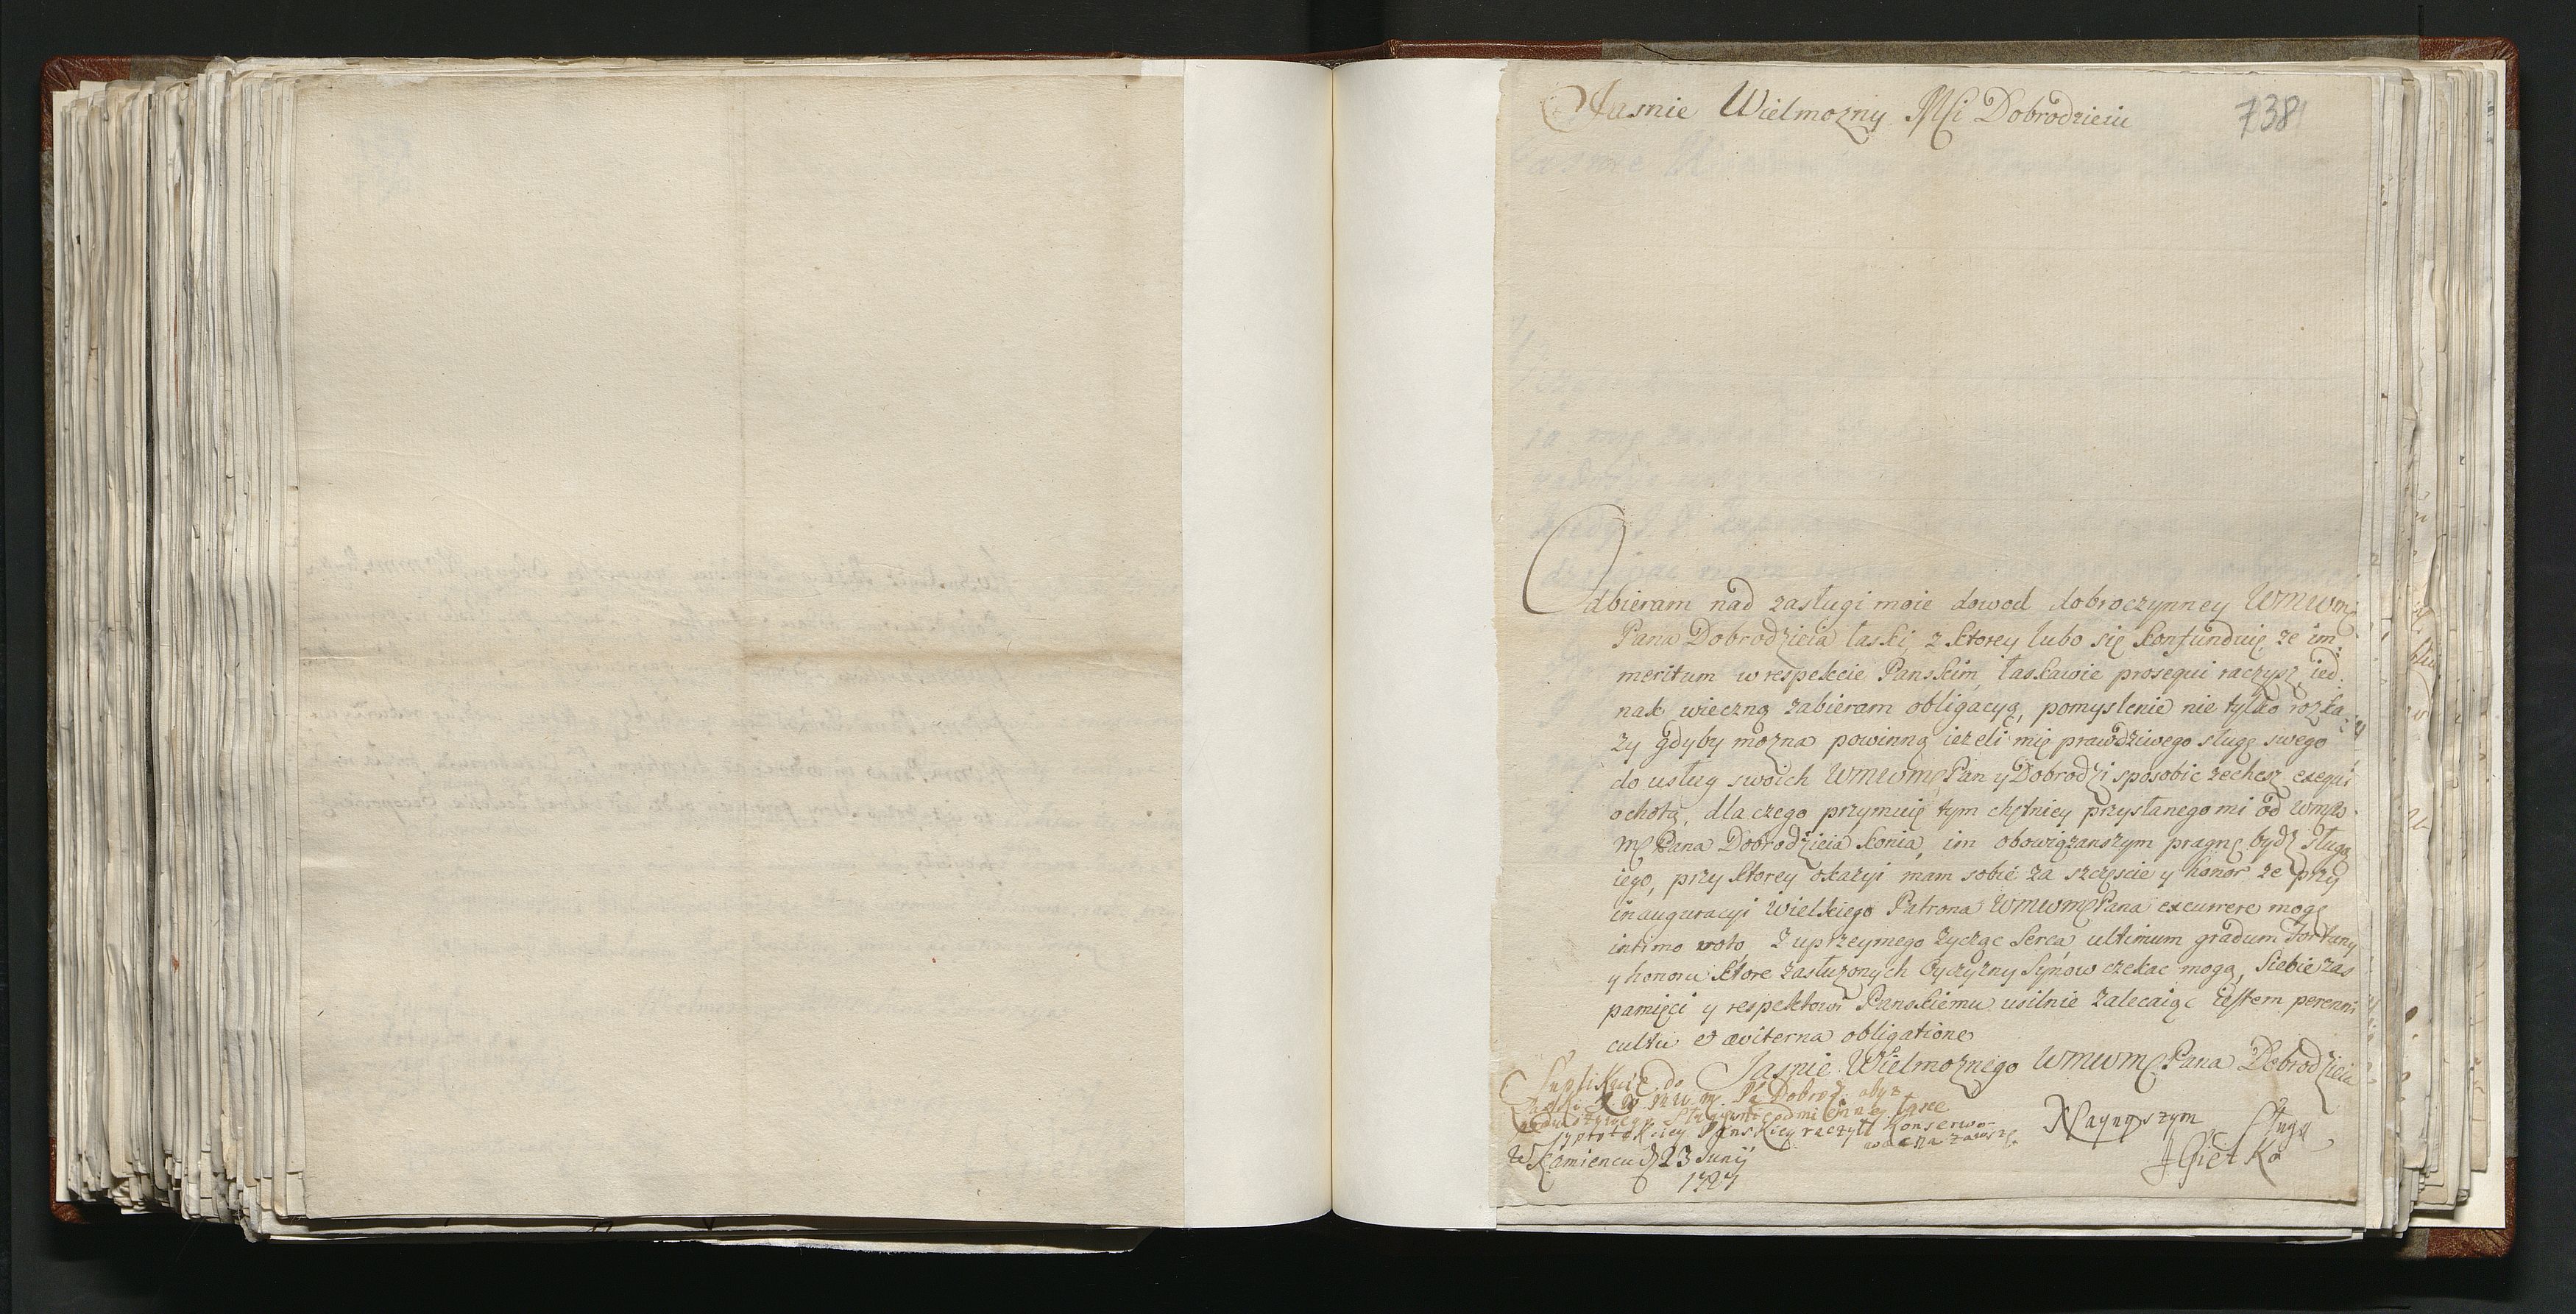 Jasnie Wielmozny Mci Dobrodzieiu
738
Odbieram nad zasługi moie dowod dobroczynney WMWM
Pana Dobrodzieia łaski, z ktorey lubo się konfunduię, ze im
meritum w respekcie Panskim, łaskawie prosequi raczysz, ied
nak wieczną zabieram obligacyą, pomyslenie nie tylko rozka
zy gdyby mozna powinną iezeli mię prawdziwego sługę swego
do usług swoich WMWM Pan y Dobrodzi sposobic zechcesz exequi
ochotą, dla czego przymuię tym chętniey przysłanego mi od WMW
M Pana Dobrodzieia konia, im obowiązanszym pragnę bydz sługą
iego, przy ktorey okazyi mam sobie za szczęscie y honor ze przy
inauguracyi Wielkiego Patrona WMWM Pana excurrere mogę
intimo voto, z uprzeymego zycząc Serca ultimum gradum Fortuny
y honoru ktore zasłuzonych Oyczyzny Synow czekac mogą, Siebie zas
pamięci y respektowi Panskiemu usilnie zalecaiąc iestem perenni
cultu et æviterna obligatione
Jasnie Wielmoznego WMWM Pana Dobrodzieia
Suplikuię do
W M W M Pa Dobrodz. abys
Sługę w nieodmienney łasce
y protekcyey Panskiey raczył konserwo
wac na zawsze
Naynszym Sługą
W Kamiencu d 23 Junij
1727